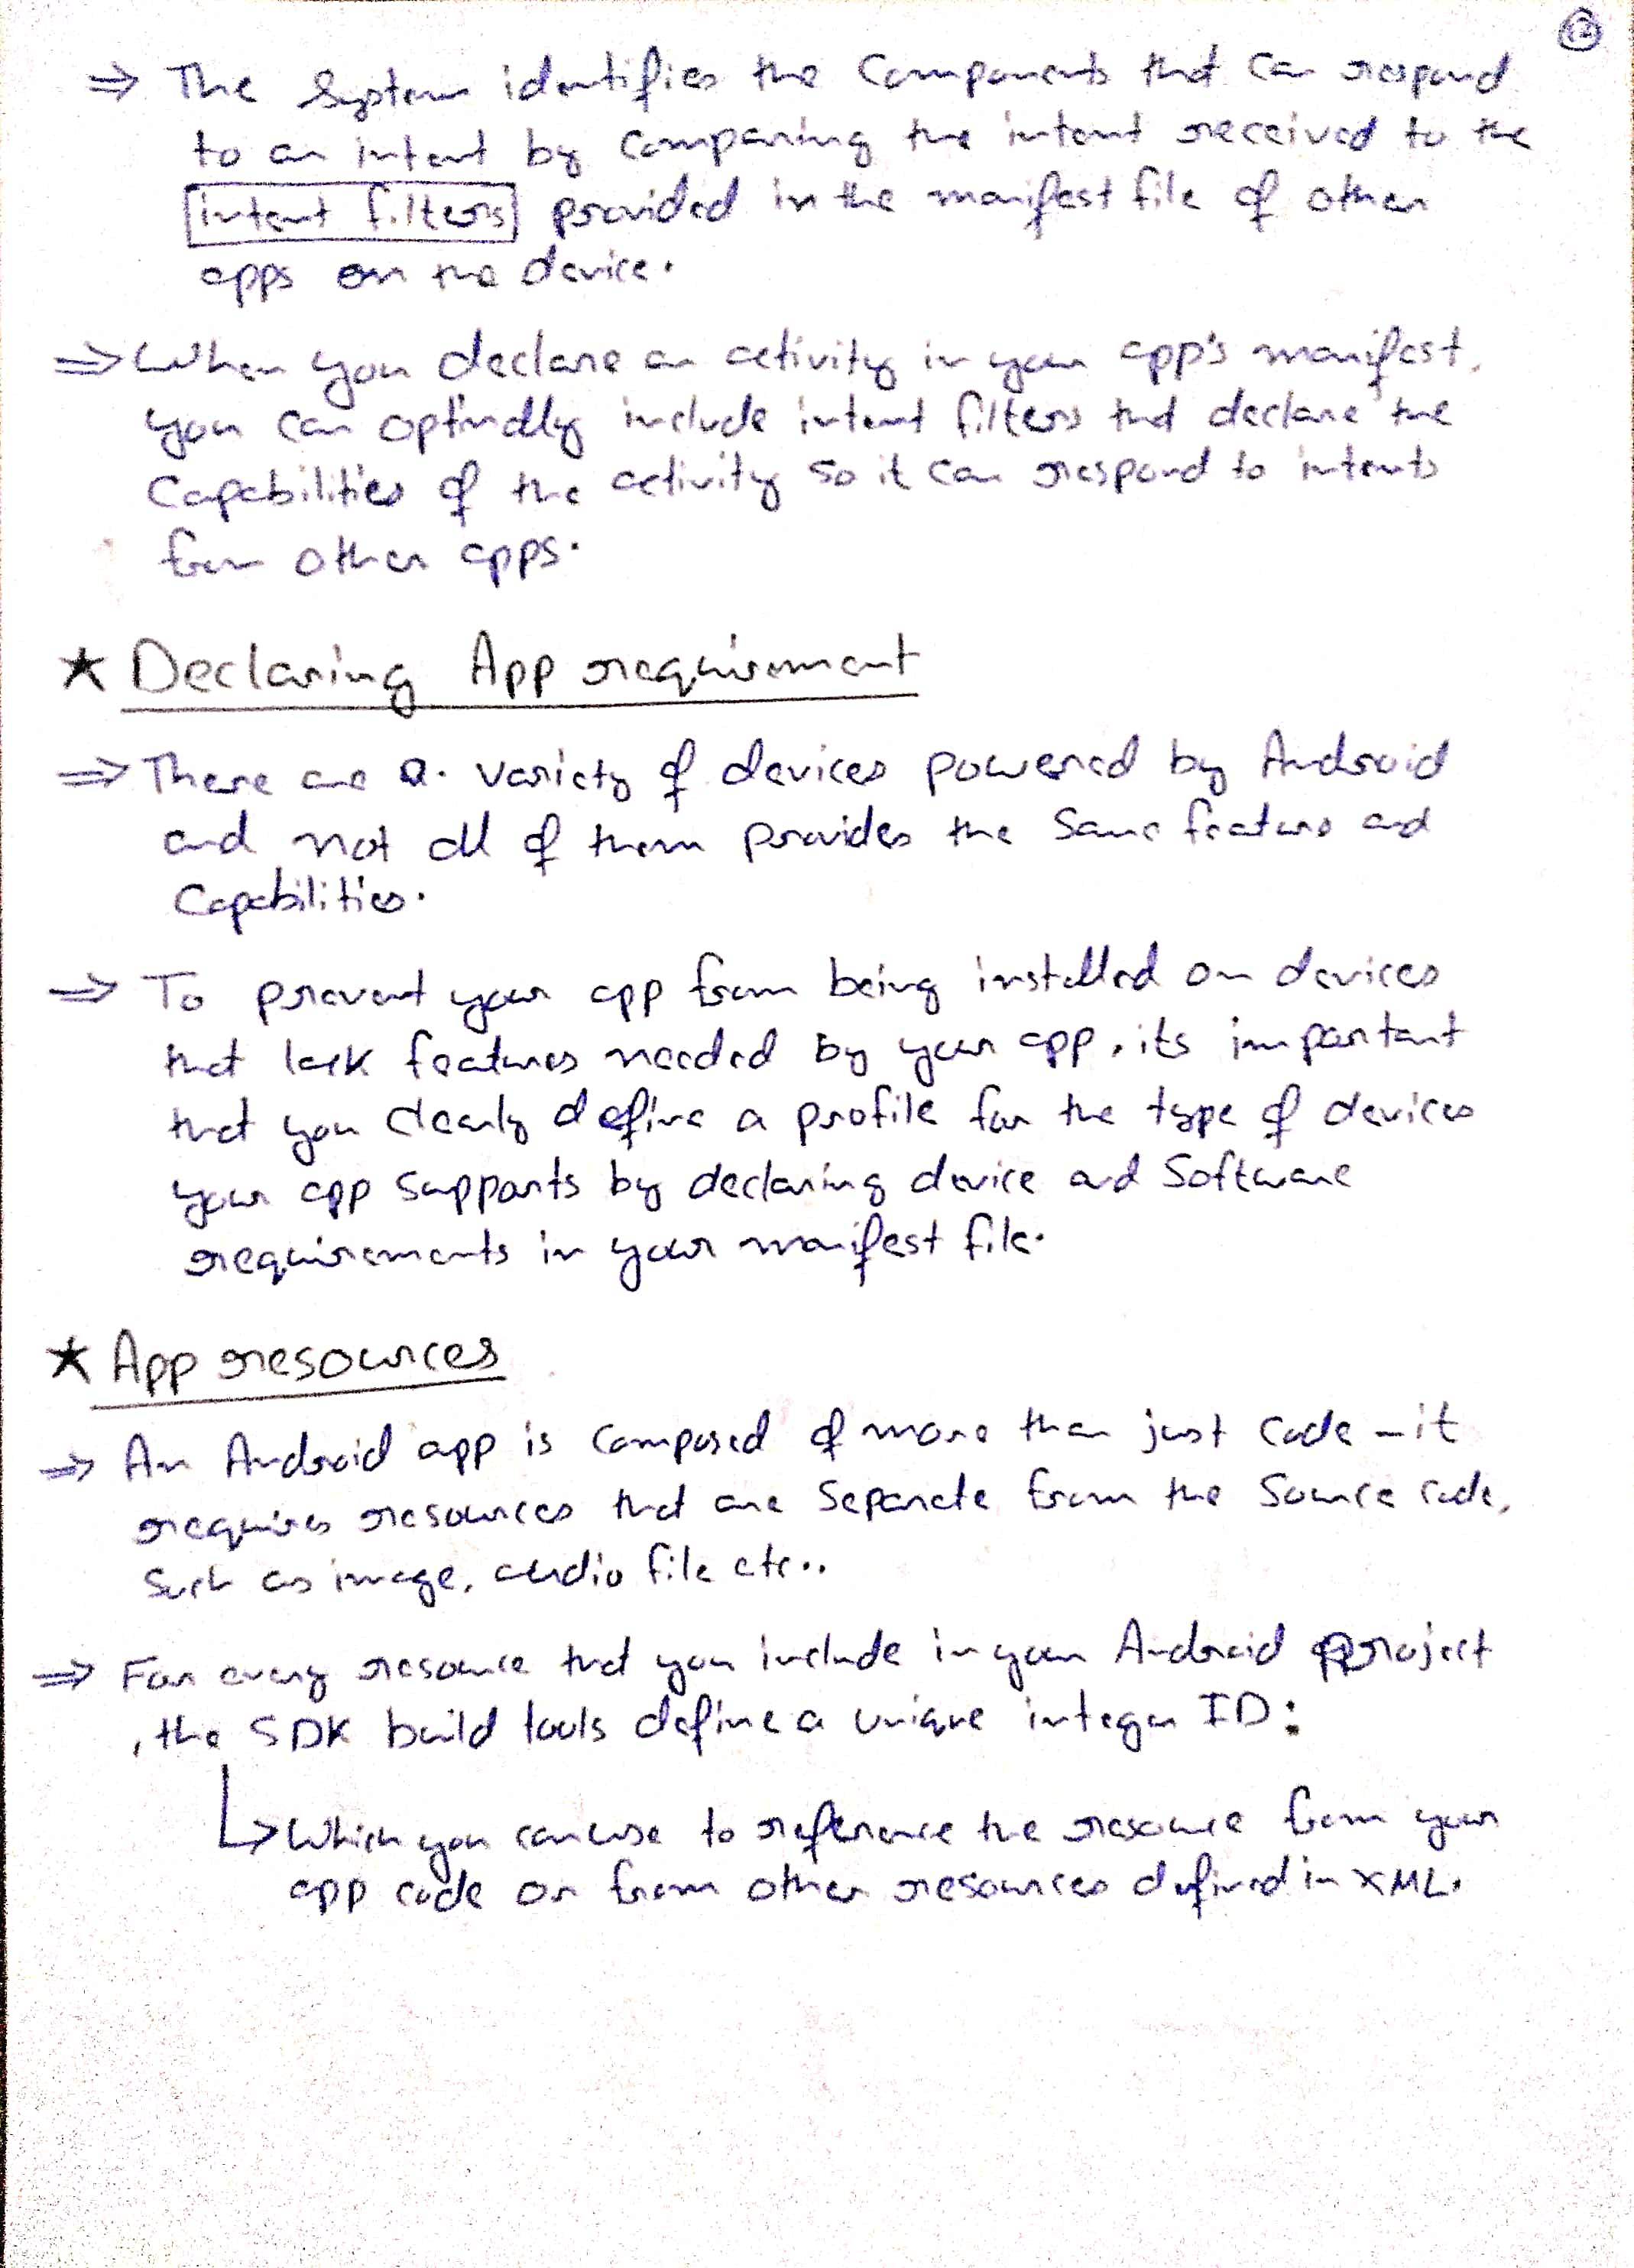 ⇒ The System identifies the Components that can respond
to an intent by Comparing the intent received to the
intent filters provided in the manifest file of other
apps on the device.
⇒ When you declare an activity in your app's manifest,
you can optinally include intent filters that declare the
Capabilities of the activity so it can respond to intents
from other apps.
★ Declaring App requirement
⇒ There are a. variety of devices powered by Android
and not all of them provides the Same feature and
Capabilities.
⇒ To prevent your app from being installed on devices
that lack features needed by your app, its important
that you clearly define a profile for the type of devices
your app supports by declaring device and Software
requirements in your manifest file.
★ App resources
⇒ An Android app is Composed of more than just Code - it
requires resources that are Separate from the Source Code,
Such as image, audio file etc..
⇒ For every resource that you include in your Android project
, the SDK build tools define a unique integer ID:
↳ Which you can use to reference the resource from your
app code or from other resources defined in XML.